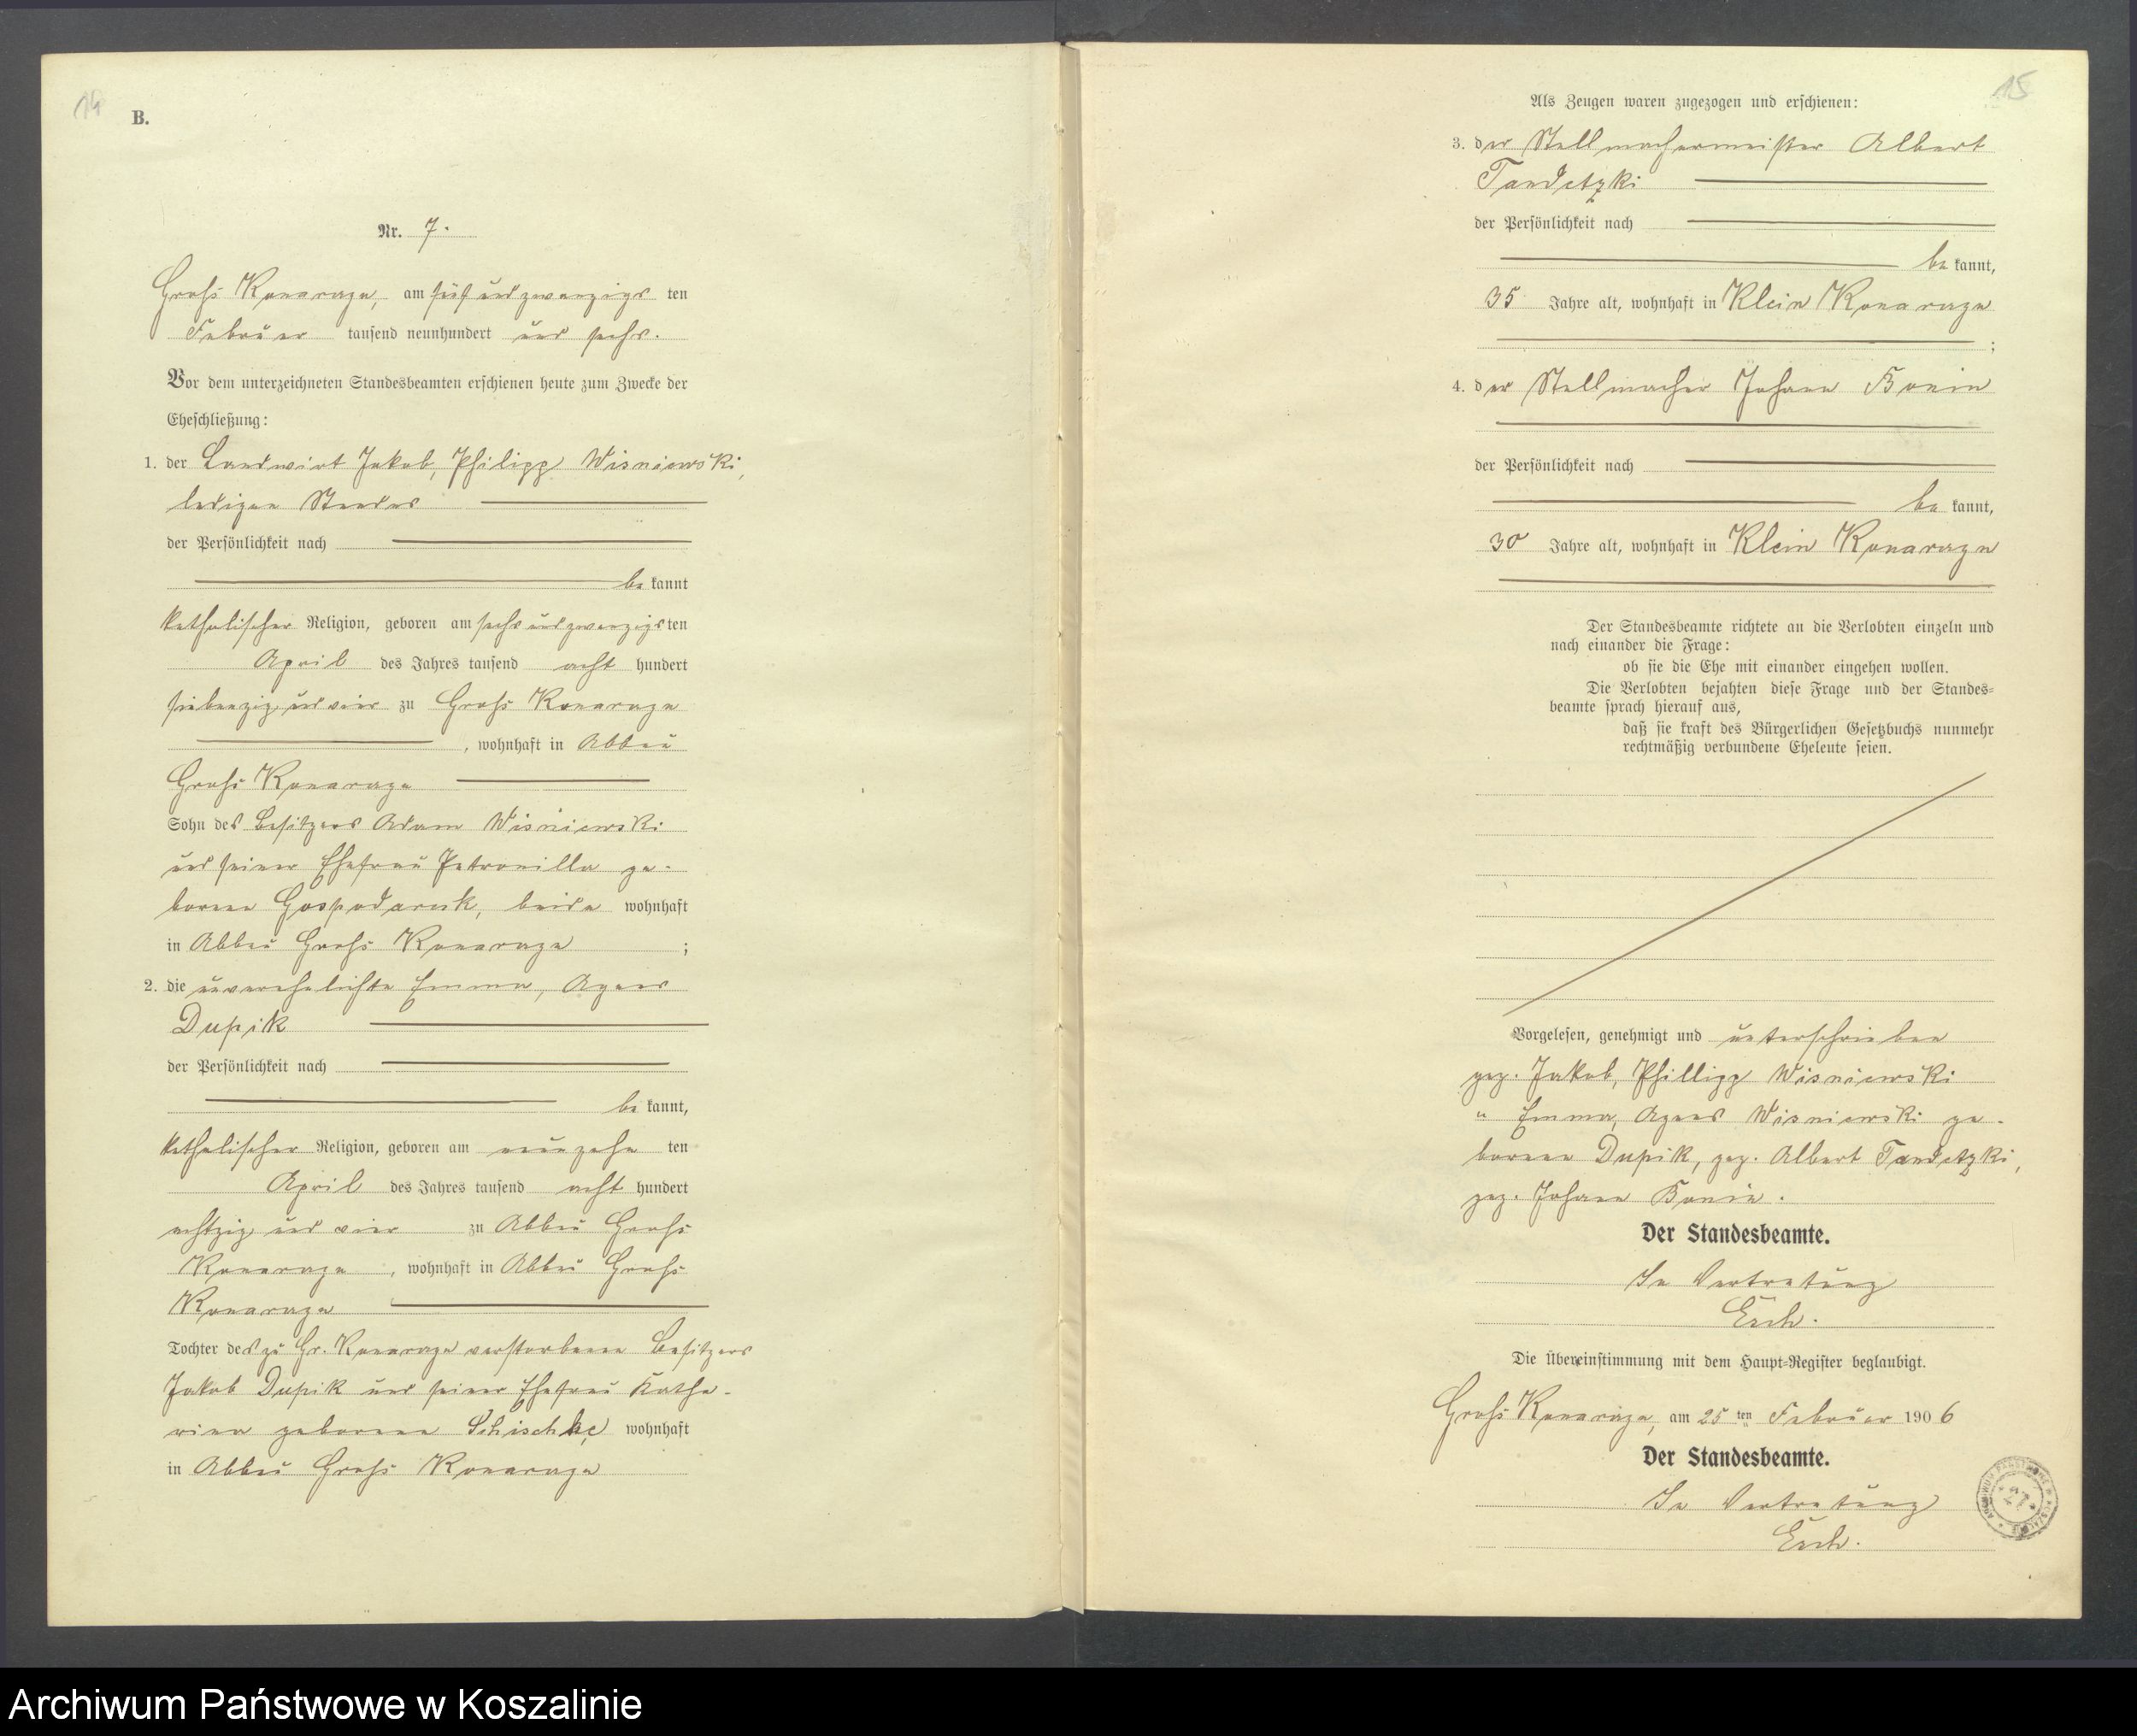 14
B.
Nr. 7.
Groß Konarzyn, am fünf und zwanzigs ten
Februar tausend neunhundert und sechs.
Vor dem unterzeichneten Standesbeamten erschienen heute zum Zwecke der
Eheschließung:
1. der Landwirt Jakob, Philipp Wisniewski,
ledigen Standes
der Persönlichkeit nach
be kannt
katholischer Religion, geboren am sechs und zwanzigs ten
April des Jahres tausend acht hundert
siebenzig und vier zu Groß Konarzyn
, wohnhaft in Abbau
Groß Konarzyn
Sohn des Besitzers Adam Wisniewski
und seiner Ehefrau Petronilla ge-
borene Gospodarek, beide wohnhaft
in Abbau Groß Konarzyn ;
2. die unverehelichte Emma, Agnes
Dupik
der Persönlichkeit nach
be kannt,
katholischer Religion, geboren am neunzehn ten
April des Jahres tausend acht hundert
achtzig und vier zu Abbau Groß
Konarzyn , wohnhaft in Abbau Groß
Konarzyn
Tochter des zu Gr. Konarzyn verstorbenen Besitzers
Jakob Dupik und seiner Ehefrau Katha-
rina geborenen Schischke, wohnhaft
in Abbau Groß Konarzyn
15
Als Zeugen waren zugezogen und erschienen:
3. der Stellmachermeister Albert
Tandetzki
der Persönlichkeit nach
be kannt,
35 Jahre alt, wohnhaft in Klein Konarzyn
;
4. der Stellmacher Johann Bonin
der Persönlichkeit nach
be kannt,
30 Jahre alt, wohnhaft in Klein Konarzyn
Der Standesbeamte richtete an die Verlobten einzeln und
nach einander die Frage:
ob sie die Ehe mit einander eingehen wollen.
Die Verlobten bejahten diese Frage und der Standes-
beamte sprach hierauf aus,
daß sie kraft des Bürgerlichen Gesetzbuchs nunmehr
rechtmäßig verbundene Eheleute seien.
Vorgelesen, genehmigt und unterschrieben
gez. Jakob, Phillipp Wisniewski
" Emma, Agnes Wisniewski ge-
borene Dupik, gez. Albert Tandetzki,
gez. Johann Bonin.
Der Standesbeamte.
In Vertretung
Esch.
Die Übereinstimmung mit dem Haupt-Register beglaubigt.
Groß Konarzyn, am 25 ten Februar 190 6
Der Standesbeamte.
In Vertretung
Esch.
27
Archiwum Państwowe w Koszalinie